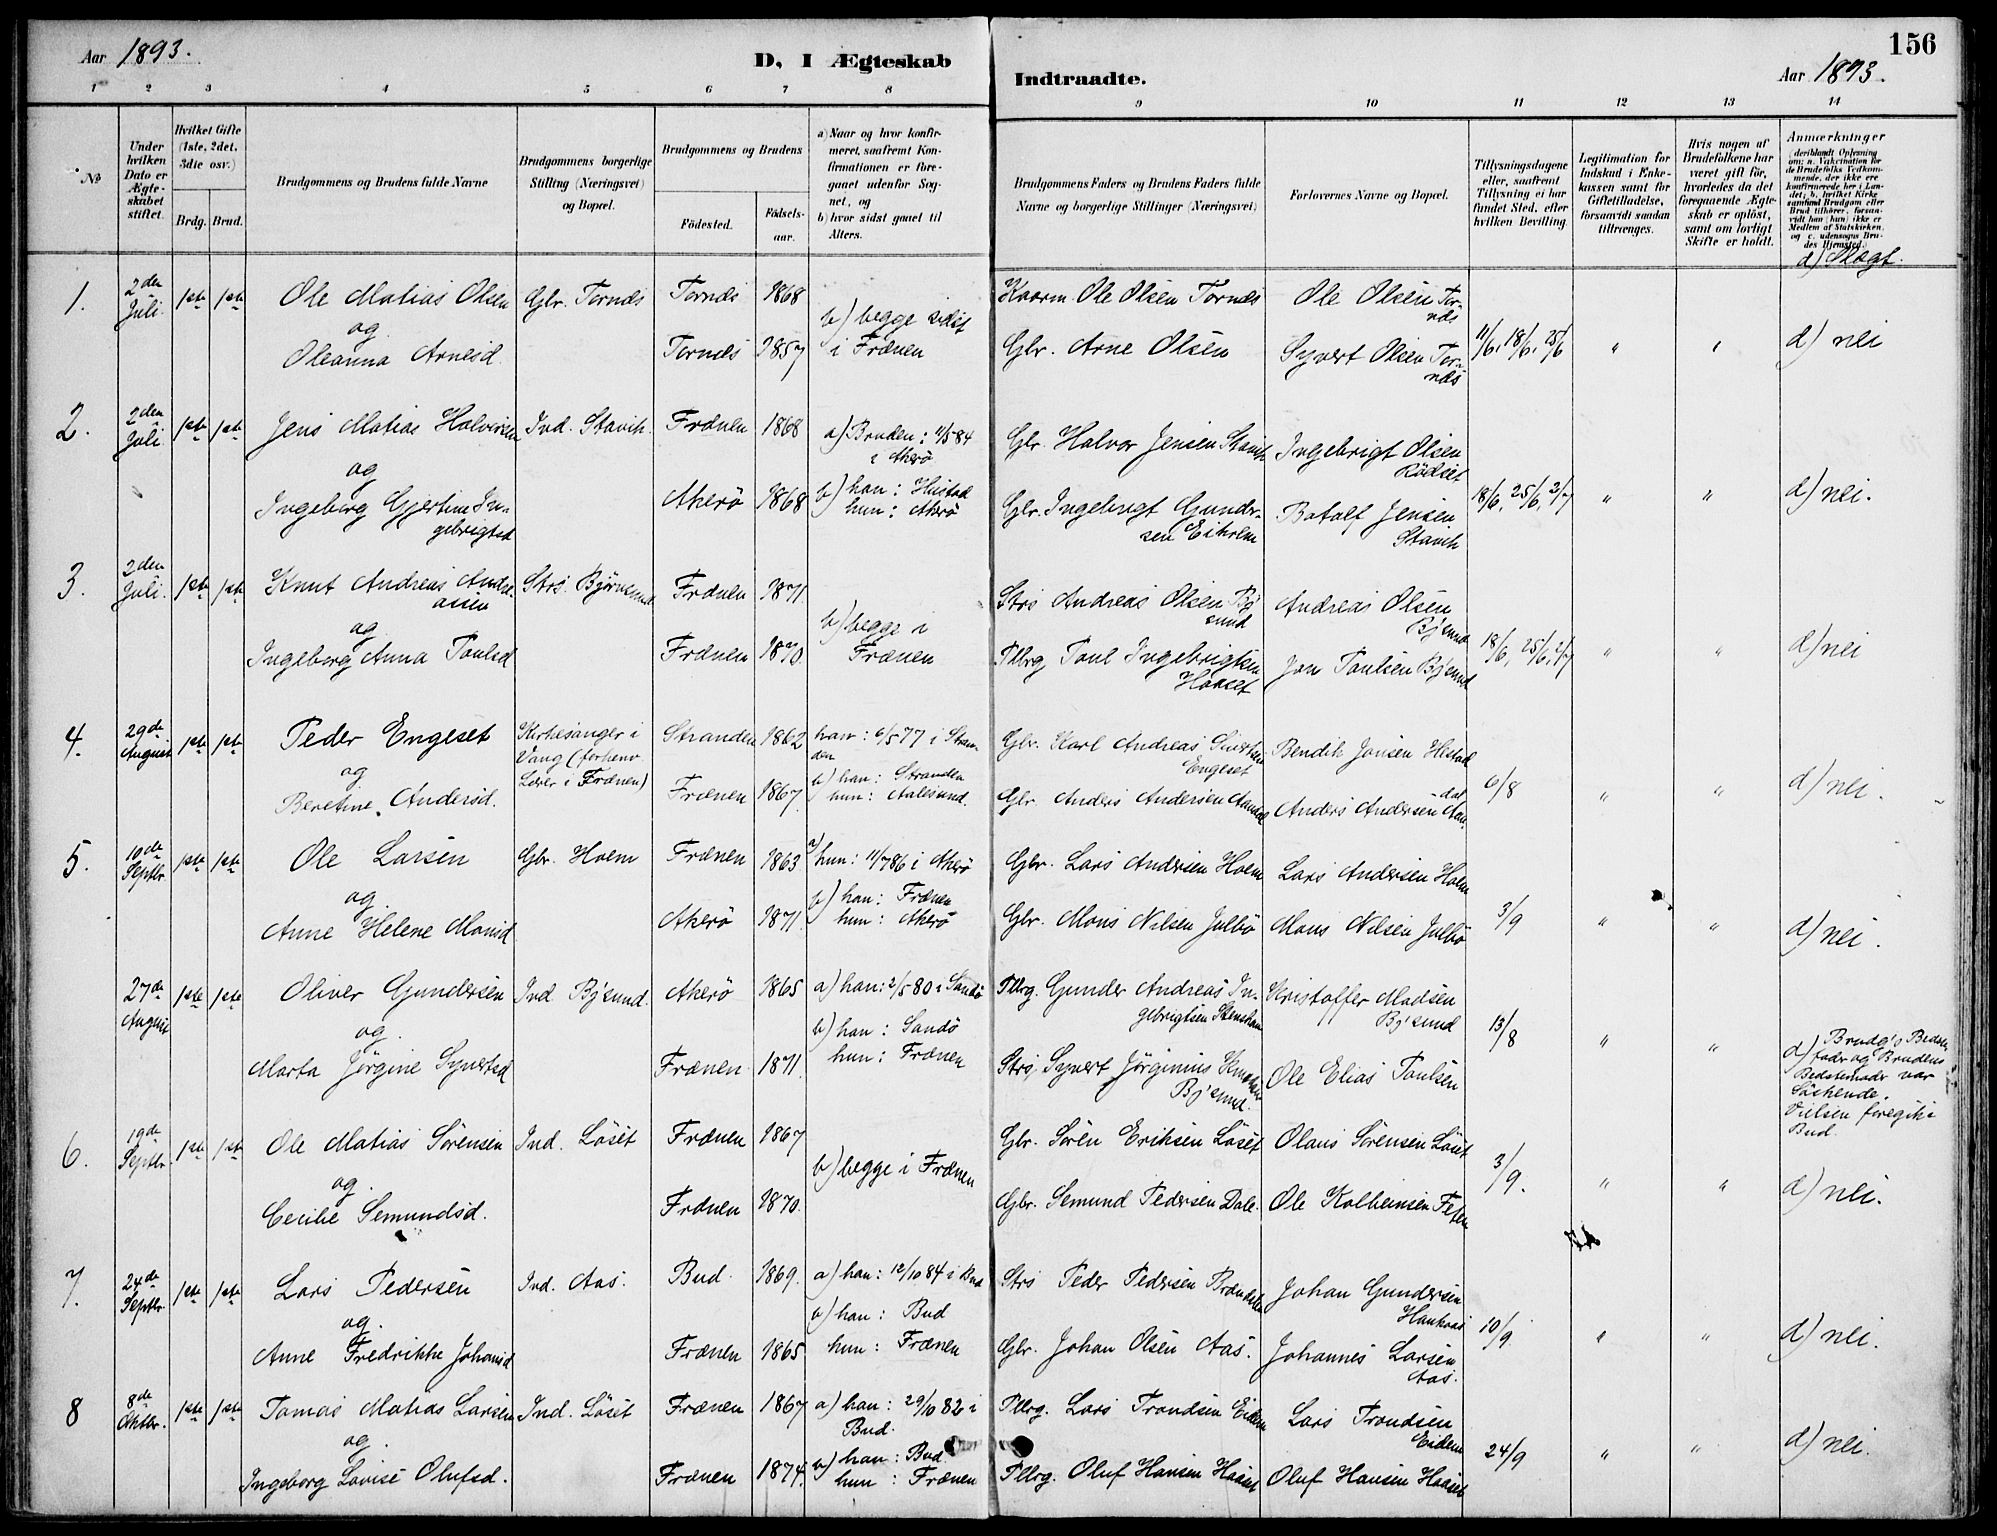 Aar 1893.
D, I Ægteskab
Indtraadte.
156
Aar 1893.
1 2 3 4 5 6 7 8 9 10 11 12 13 14
No
Under hvilken Dato er Ægteskabet stiftet.
Hvilket Gifte (1ste, 2det, 3die osv.)
Brdg. Brud.
Brudgommens og Brudens fulde Navne
Brudgommens borgerlige Stilling (Næringsvei) og Bopæl.
Brudgommens og Brudens
Fødested.
Fødselsaar.
a) Naar og hvor konfirmeret, saafremt Konfirmationen er foregaaet udenfor Sognet, og
b) hvor sidst gaaet til Alters.
Brudgommens Faders og Brudens Faders fulde Navne og borgerlige Stillinger (Næringsvei)
Forlovernes Navne og Bopæl.
Tillysningsdagene eller, saafremt Tillysning ei har fundet Sted, efter hvilken Bevilling.
Legitimation for Indskud i Enkekassen samt for Giftetilladelse, forsaavidt saadan tiltrænges.
Hvis nogen af Brudefolkene har været gift før, hvorledes da det foregaaende Ægteskab er opløst, samt om lovligt Skifte er holdt.
Anmærkninger
d) Slægt.
1. 2den Juli. 1ste 1ste Ole Matias Olsen Gbr. Tornæs Tornæs 1868 Kaarm. Ole Olsen Tornæs Ole Olsen Tornæs
og b) begge sidst i Frænen
Oleanna Arnesd. Tornæs 1857 Gbr. Arne Olsen Syvert Olsen Tornæs 11/6, 18/6, 25/6 " " d) nei
2. 2den Juli. 1ste 1ste Jens Matias Halvorsen Ind. Stavik. Frænen 1868 a) Bruden: 11/5 84 i Akerö Gbr. Halvor Jensen Stavik Ingebrigt Olsen Rödset
og
Ingeborg Gjertine Ingebrigtsd Akerö 1868 b) han: Hustad hun: Akerö Gbr. Ingebrigt Gundersen Eikrem Botolf Jensen Stavik 18/6, 25/6, 2/7 " " d) nei.
3. 2den Juli. 1ste 1ste Knut Andreas Andreassen Strs. Björnsund Frænen 1871. Strs Andreas Olsen Bj sund Andreas Olsen Bj'sund
og b) begge i Frænen
Ingeborg Anna Poulsd Frænen 1870. Pllrg Poul Ingebrigtsen Haaset Jon Poulsen Bj'sund 18/6, 25/6, 2/7 " " d) nei
4. 29de August 1ste 1ste Peder Engeset Kirkesanger i Vang (forhenv Lærer i Frænen) Stranden 1862 han: 6/5 77 i Stranden Gbr. Karl Andreas Sivertsen Engeset Bendik Jonsen Hestad
og
Beretine Andersd. Frænen 1867. b) han: Stranden hun: Aalesund. Gbr. Anders Andersen Aandal Anders Andersen Aandal 6/8 " " d) nei.
5. 10de Septbr. 1ste 1ste Ole Larsen Gbr. Holm Frænen 1863 a) hun: 11/7 86 i Akerö Gbr. Lars Andersen Holm Lars Andersen Holm
og.
Anne Helene Monsd Akerö 1871. b) han: Frænen hun: Akerö Gbr. Mons Nilsen Julbö Mons Nilsen Julbö 3/9 " " d) nei.
27de August 1ste 1ste Oliver Gundersen Ind. Bj'sund. Akerö 1865 a) han: 2/5 80 i Sandö Pllrg. Gunder Andreas Ingebrigtsen Stensham Kristoffer Madsen Bj'sund
og.
Marta Jörgine Syvertsd Frænen 1871. b) han: Sandö hun: Frænen Strs. Syvert Jörginius Knutsen Bj'sund. Ole Elias Poulsen 13/8 " " d) Brudg's Bedstefader og Brudens Bedstemoder var Söskende. Vielsen foregik i Bud.
6. 19de Septbr. 1ste 1ste Ole Matias Sörensen Ind. Löset Frænen 1867 Gbr. Sören Eriksen Löset Olaus Sörensen Löset
og. b) begge i Frænen
Cecilie Semundsd. Frænen 1870. Gbr. Semund Pedersen Dale. Ole Kolbeinsen 3/9. " " d) nei.
7. 24de Septbr. 1ste 1ste Lars Pedersen Ind. Aas. Bud. 1869. a) han: 12/10 84 i Bud Strs Peder Pedersen Johan Gundersen Haukaas
og.
Anne Fredrikke Johansd Frænen 1865 b) han: Bud hun: Frænen Gbr. Johan Olsen Aas. Johannes Larsen Aas. 10/9. " " d) nei.
8 8de Oktbr. 1ste 1ste Tomas Matias Larsen Ind. Löset Frænen 1867 a) han: 29/10 82 i Bud. Pllrg. Lars Trondsen Eidem Lars Trondsen Eidem
og.
Ingeborg Lovise Olufsd. Frænen 1874. b) han: Bud hun: Frænen Pllrg. Oluf Hansen Haaset Oluf Hansen Haaset 24/9 " " d) nei.